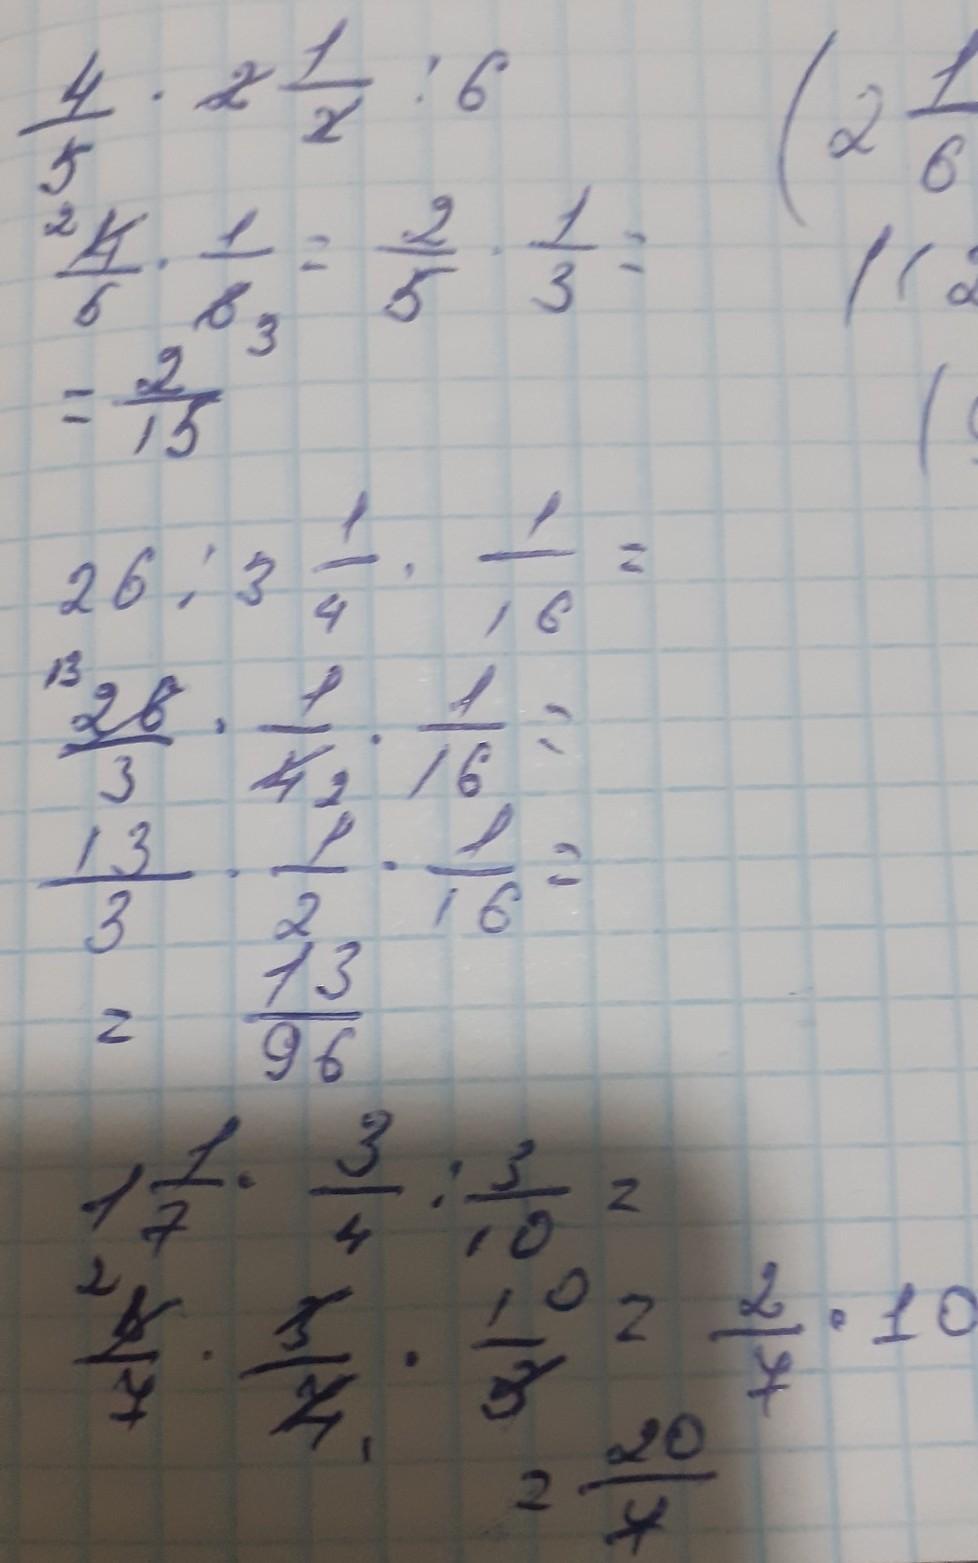 4/5 · 2 1/2 : 6
4/5 · 1/6 = 2/5 · 1/3 =
= 2/15
26 : 3 1/4 · 1/16 =
26/3 · 1/4 · 1/16 =
13/3 · 1/2 · 1/16 =
= 13/96
1 1/7 · 3/4 : 3/10 =
8/7 · 3/4 · 10/3 = 2/7 · 10
= 20/7
(2 1/6